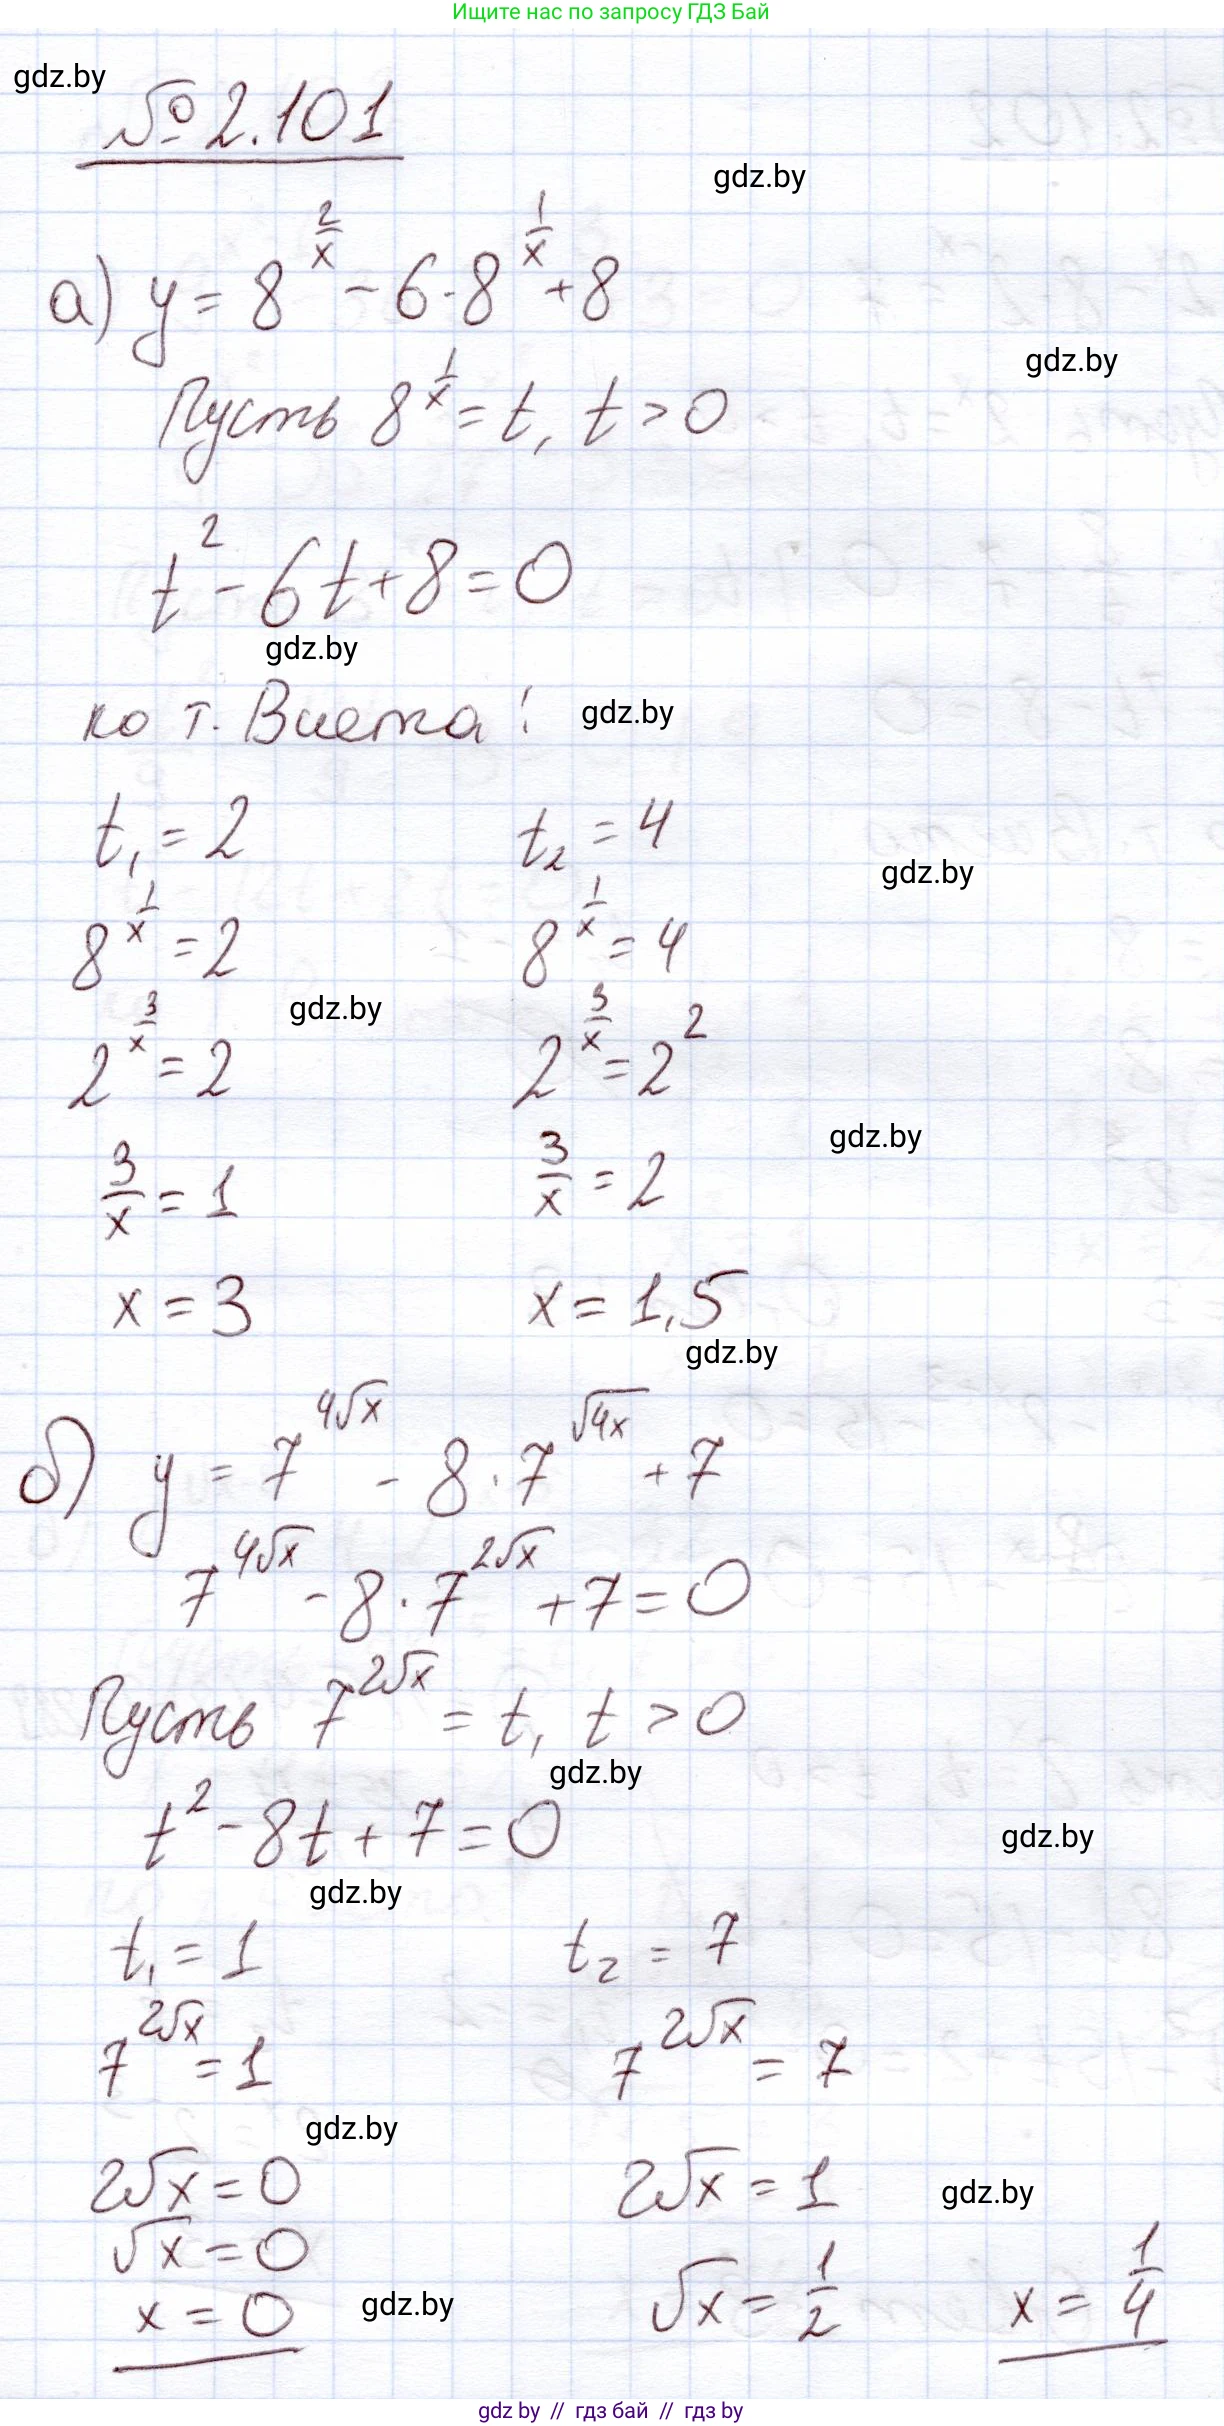 Ищите нас по запросу ГДЗ Бай
gdz.by
№ 2.101
gdz.by
а) y = 8^(2/x) - 6·8^(1/x) + 8
gdz.by
Пусть 8^(1/x) = t, t > 0
t² - 6t + 8 = 0
gdz.by
по т. Виета: gdz.by
t₁ = 2 t₂ = 4
gdz.by
8^(1/x) = 2 8^(1/x) = 4
gdz.by
2^(3/x) = 2 2^(3/x) = 2²
gdz.by
3/x = 1 3/x = 2
x = 3 x = 1,5
gdz.by
б) y = 7^(4√x) - 8·7^(√4x) + 7
7^(4√x) - 8·7^(2√x) + 7 = 0
Пусть 7^(2√x) = t, t > 0
gdz.by
t² - 8t + 7 = 0
gdz.by
gdz.by
t₁ = 1 t₂ = 7
7^(2√x) = 1 7^(2√x) = 7
gdz.by
2√x = 0 2√x = 1 gdz.by
√x = 0 √x = 1/2 x = 1/4
x = 0 gdz.by
gdz by // гдз бай // гдз by